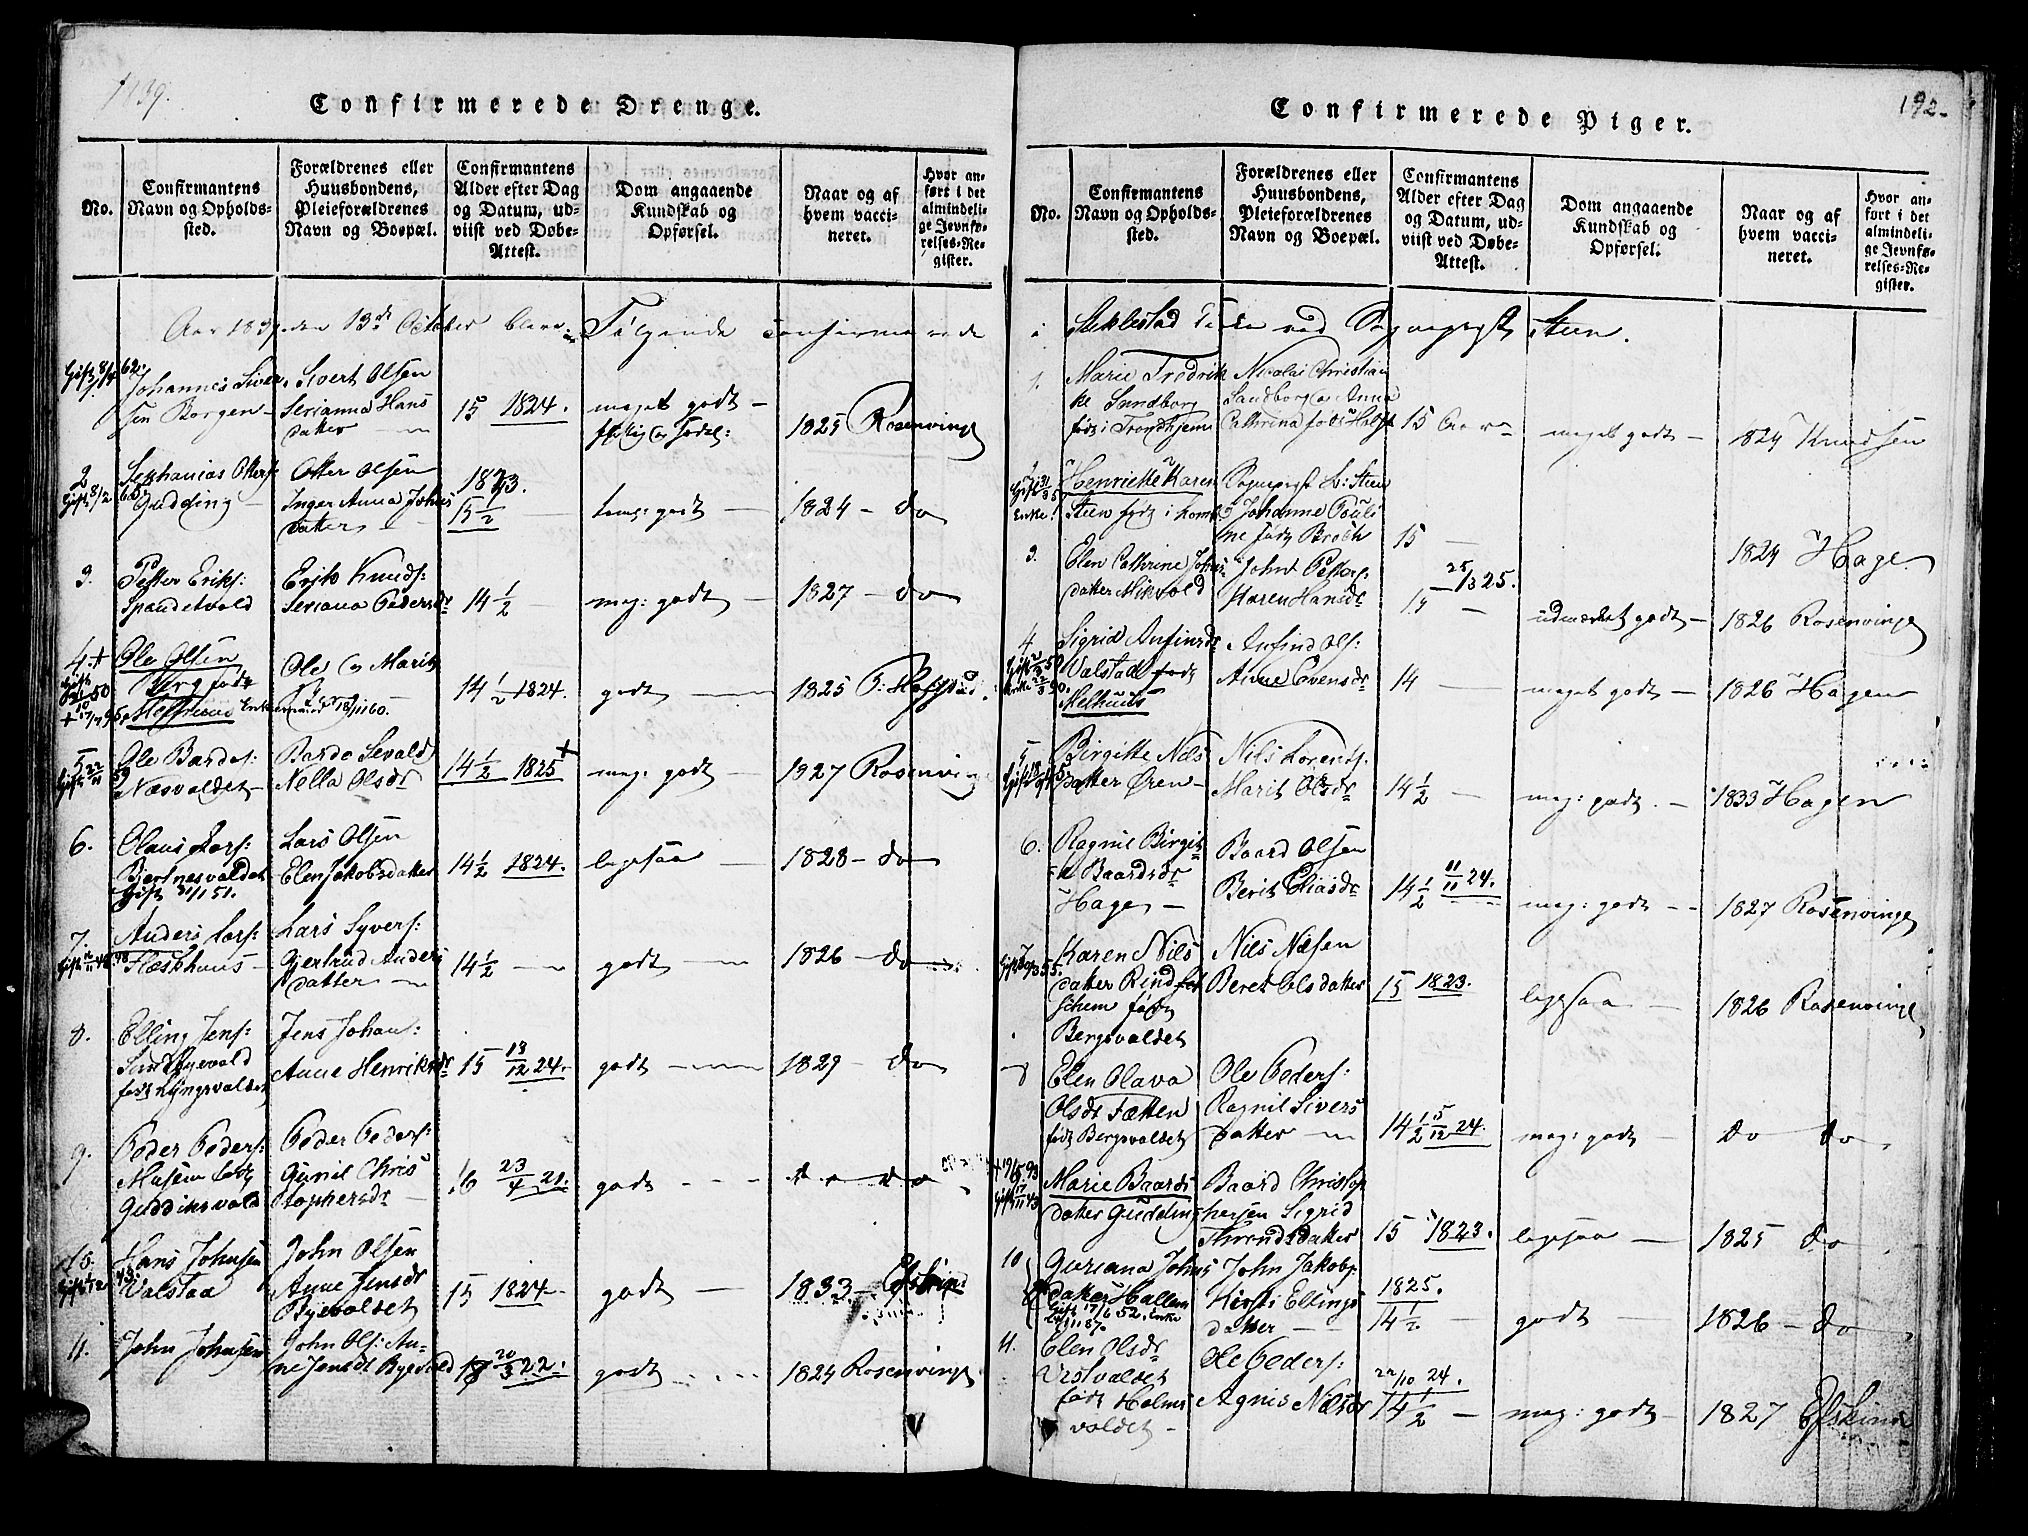 1839.
Confirmerede Drenge.
No.
Confirmantens Navn og Opholds-sted.
Forældrenes eller Huusbondens, Pleieforældrenes Navn og Boepæl.
Confirmantens Alder efter Dag og Datum, ud-viist ved Døbe-Attest.
Dom angaaende Kundskab og Opførsel.
Naar og af hvem vacci-neret.
Hvor an-ført i det almindeli-ge Jevnfø-relses-Re-gister.
Aar 1839 den 13de October bleve Følgende confirmerede
Johannes Siver
sen Borgen
Sivert Olsen
Serianna Hans
datter
15 1824.
meget godt
1825 Rosenvinge
2
Gift 8/2 65
Sephanias Otters:
Gudding
Otter Olsen
Inger Anna Johns
datter
1823.
15 1/2
temp: godt
1824 - do
3.
Petter Eriks:
Spandetvald
Erik Knuds:
Seriana Pedersdr
14 1/2
meg: godt
1827 - do
4. +
Ole Olsen
Berg født
Ole og Marit
Berg
14 1/2 1824.
godt
1825
5
Gift 22/11 59
Ole Bardos:
Næsvaldet
Bardo Sevald
Nella Olsdr
14 1/2 1825 +
meg: godt
1827 Rosenvinge
6.
Olaus Lars:
Bjertnesvaldet
Gift 21/1 51.
Lars Olsen
Elen Jakobsdatter
14 1/2 1824.
ligesaa
1828 - do
7.
Anders Lars:
Flæskhuus
Lars Syvers:
Gjertrud Anders
datter
14 1/2
godt
1826 - do
8.
Elling Jens:
født Lyngsvaldet
Jens Johans:
Anne Henriksdr
15 13/12 24.
godt
1829 - do
9.
Peder Peders:
Musem født
Guddingsvald
Peder Peders:
Gunil Chris
tophersdr
16 23/4 21.
godt
do do
10.
Hans Johnsen
Valstad
John Olsen
Anne Jensdr
Byevaldet
15 1824
godt
1833 Elskind
11.
John Johnsen
John Ols: An-
ne Jensdr Byevald
20/3 22.
godt
1824 Rosenvinge
192.
Confirmerede Piger.
No.
Confirmantens Navn og Opholds-sted.
Forældrenes eller Huusbondens, Pleieforældrenes Navn og Boepæl.
Confirmantens Alder efter Dag og Datum, ud-viist ved Døbe-Attest.
Dom angaaende Kundskab og Opførsel.
Naar og af hvem vacci-neret.
Hvor an-ført i det almindeli-ge Jevnfø-relses-Re-gister.
i Stiklestad Kirke ved Sognepræst Steen.
1.
Marie Fredrik
ke Sundborg
født i Trondhjem
Nicolai Christian
Sandborg og Anna
Cathrina født Holst
15 Aar
meget godt
1824 Knudsen
Henriette Karen
Steen født i
Sognepræst H: Steen
Johanne Pauli
ne født Broch
15
1824 Hagen
3.
Elen Cathrine Johns
datter Mikvold
John Petters:
Karen Hansdr
1825.
15
udmærket godt
1826 Rosenvinge
4.
Sigrid Anfinsdr
Valstad født
Melhuus
Anfind Ols:
Anne Evensdr
14
meget godt
1826 Hagen
5
Birgitte Nils
datter Øren
Nils Lorents:
Marit Olsdr
14 1/2
meg: godt
1833 Hagen
6.
Ragnil Birgit
te Baardsdr
Hagen
Baard Olsen
Berit Eliasdr
14 1/2 11/11 24.
meg: godt
1827 Rosenvinge
7
Karen Nils
datter Rind
schem født
Bergsvaldet
Nils Næsen
Beret Olsdatter
15 1823.
ligesaa
1826 Rosenvinge
8
Elen Olava
Olsdr Fætten
født Bergsvaldet
Ole Peders:
Ragnil Sivers
datter
14 1/2 15/12 24.
meg: godt
do do
Marie Baards
datter Gudding
Baard Christop
hersen Sigrid
Throndsdatter
15 1823.
ligesaa
1825 do
10
Guriana Johns
datter Hallem
Gift 17/6 52. Enke
John Jakobs
Kirsti Ellings
datter
1825.
14 1/2
godt
1826 - do
11.
Elen Olsdr
Vistvaldet
født Holms
valdet
Ole Peders:
Agnis Nilsdr
22/10 24.
14 1/2
meg: godt
1827 Elskind